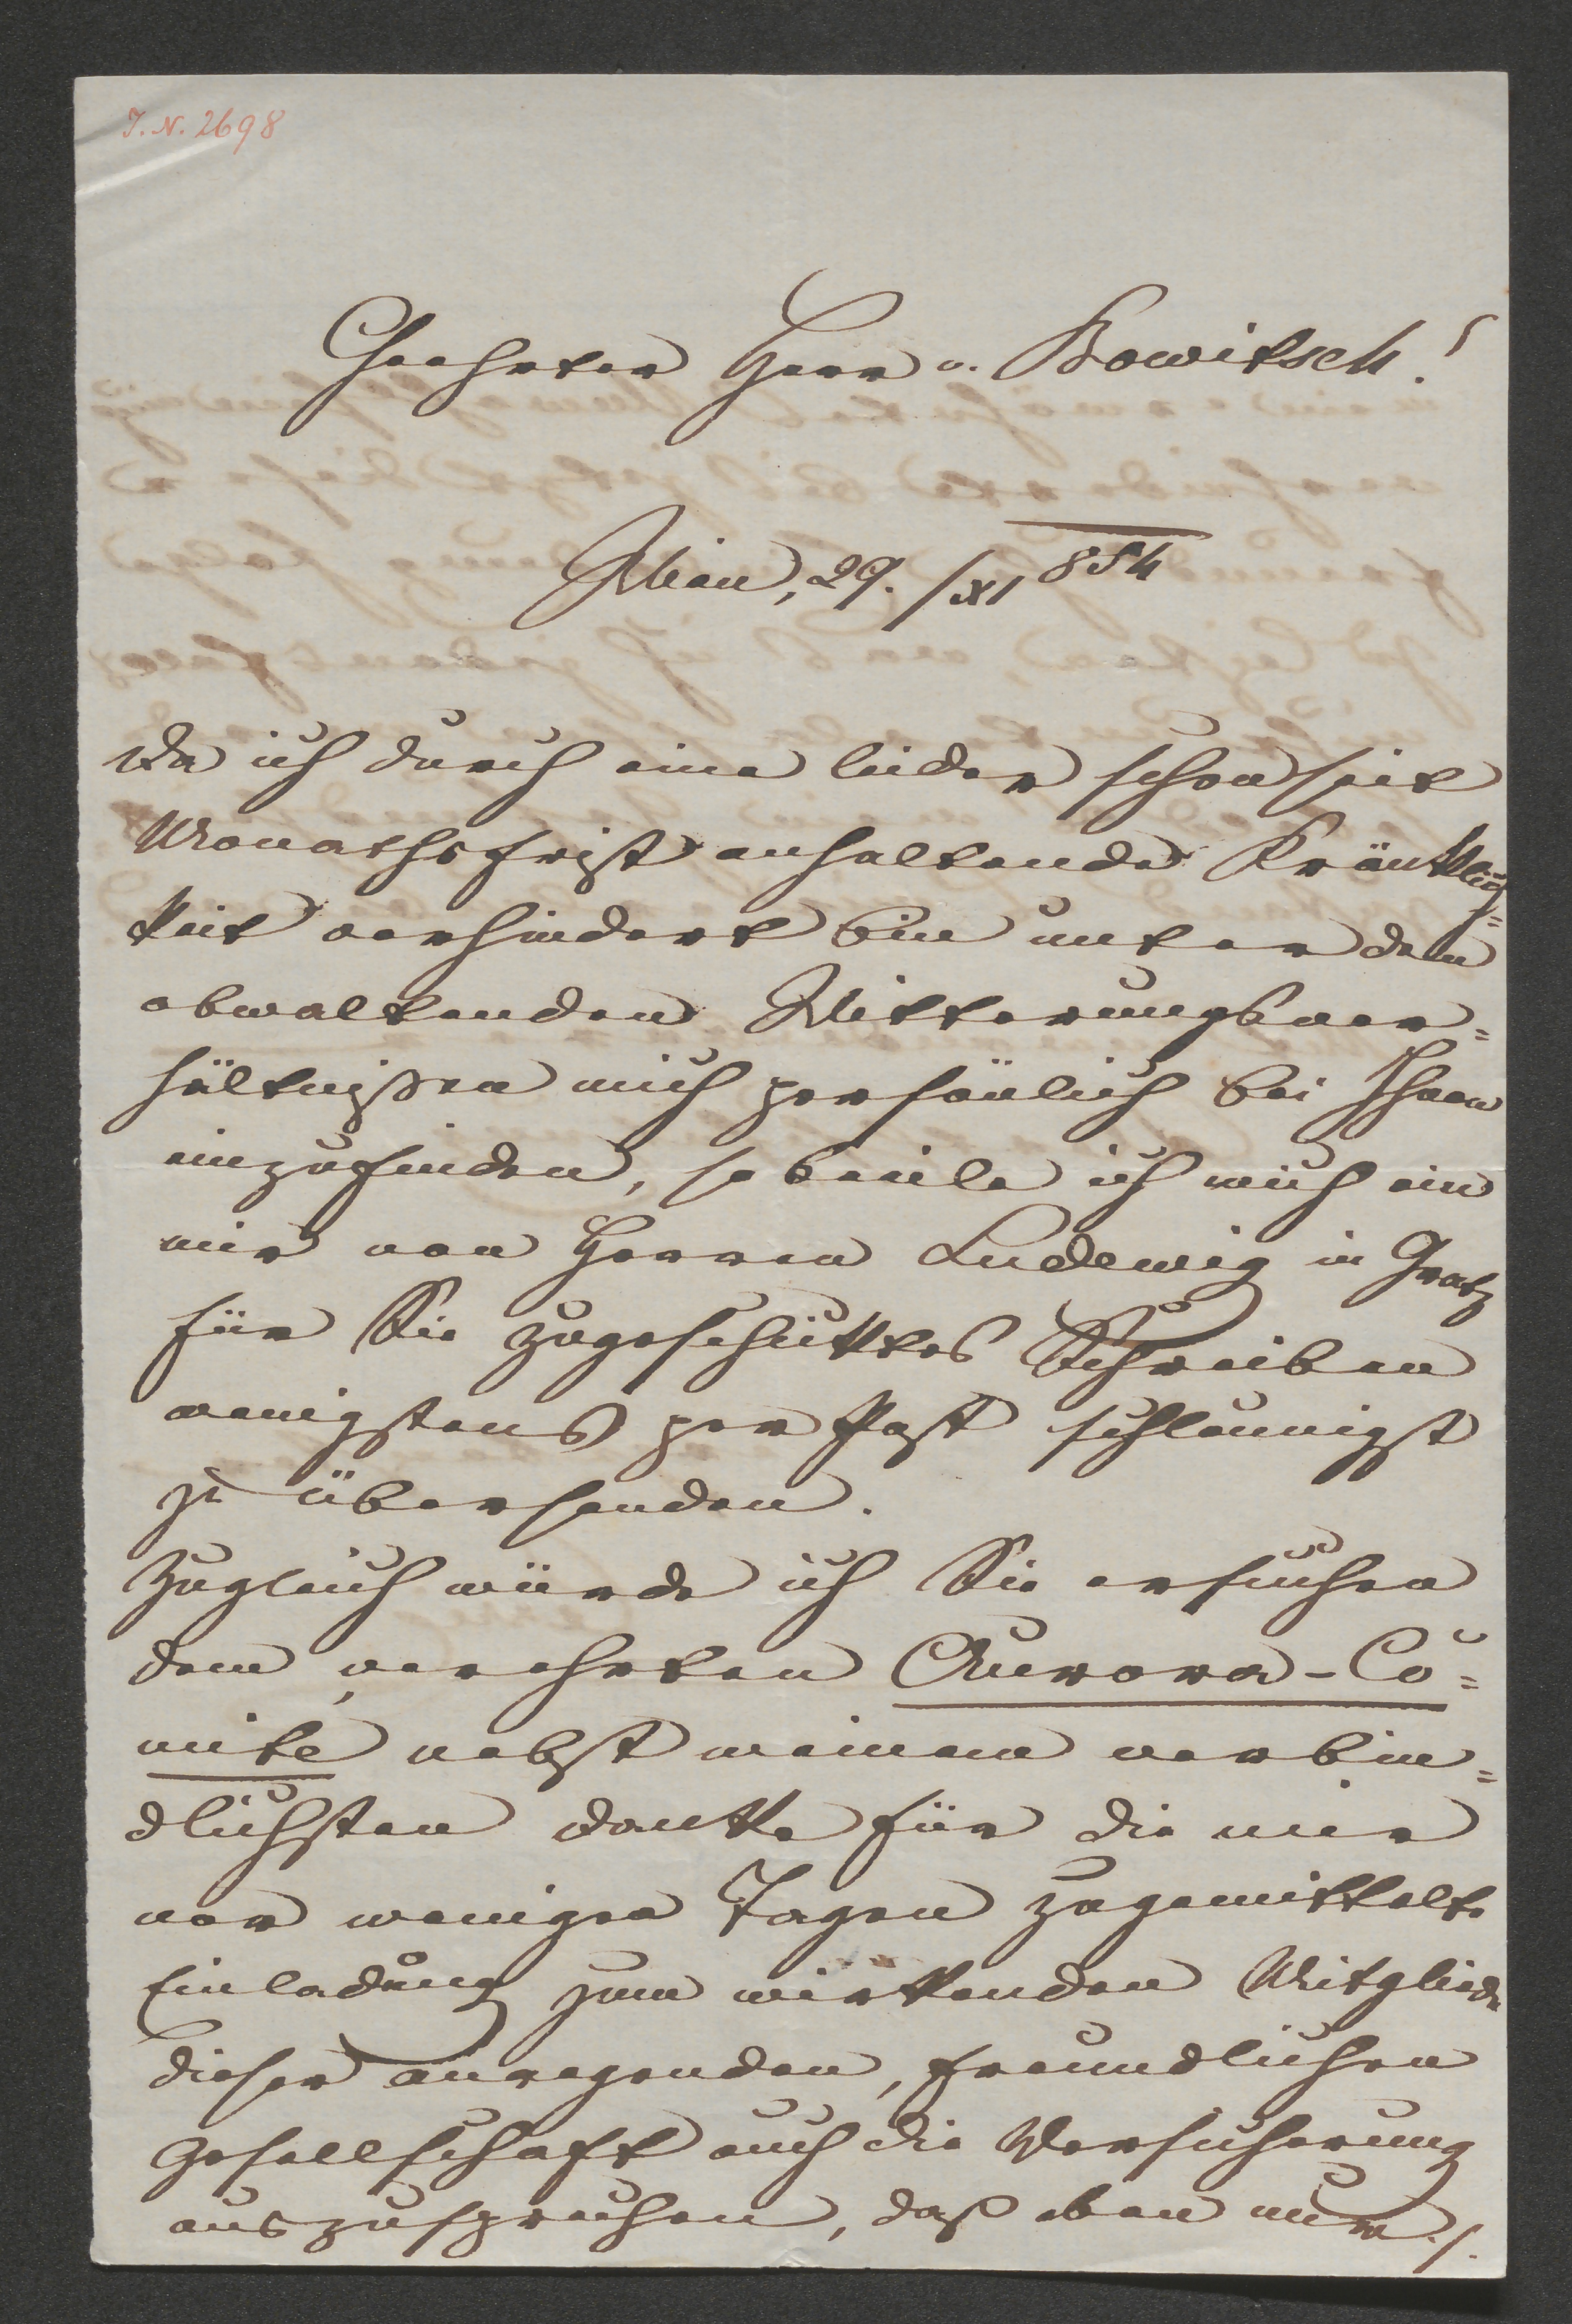 I. N. 2698
Geehrter Herr v. Bowitsch!
Wien, 29./XI 854
Da ich durch eine leider schon seit
Monathsfrist anhaltende Kränklich=
keit verhindert bin unter den
obwaltenden Witterungsver=
hältnißen mich persönlich bei Ihnen
einzufinden, so beeile ich mich ein
mir von Herren Ludewig in Gratz
für Sie zugeschicktes Schreiben
wenigstens per Post schleunigst
zu übersenden.
Zugleich würde ich Sie ersuchen
dem verehrten Aurora-Co=
mite nebst meinem verbin=
dlichsten Danke für die mir
vor wenigen Tagen zugemittelte
Einladung zum wirkenden Mitgliede
dieser anregenden, freundlichen
Gesellschaft auch die Versicherung
auszusprechen, daß eben nur ./.